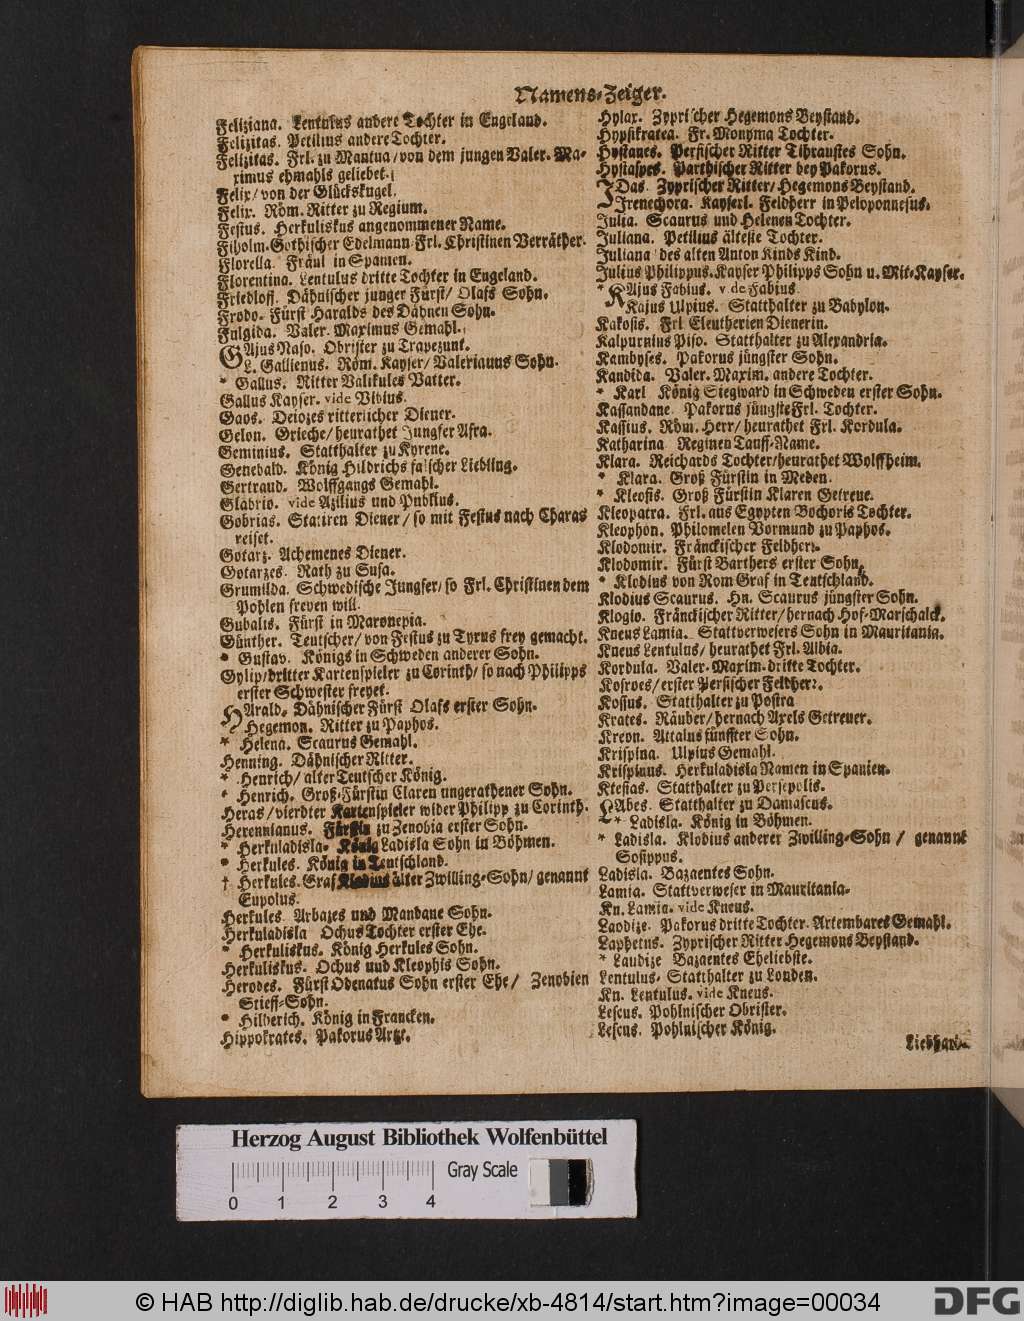 Namens-Zeiger.
Feliziana. Lentulus andere Tochter in Engeland.
Felizitas. Petilius andere Tochter.
Felizitas. Frl. zu Mantua / von dem jungen Valer. Ma-
ximus ehmahls geliebet.
Felix / von der Glückskugel.
Felix. Röm. Ritter zu Regium.
Festus. Herkuliskus angenommener Name.
Fiholm. Gothischer Edelmann Frl. Christinen Verräther.
Florella. Fräul in Spanien.
Florentina. Lentulus dritte Tochter in Engeland.
Friedloff. Dähnischer junger Fürst / Olafs Sohn.
Frodo. Fürst Haralds des Dähnen Sohn.
Fulgida. Valer. Maximus Gemahl.
GAjus Naso. Obrister zu Trapezunt.
L. Gallienus. Röm. Kayser / Valerianus Sohn.
* Gallus. Ritter Valikules Vatter.
Gallus Kayser. vide Vibius.
Gaos. Deiozes ritterlicher Diener.
Gelon. Grieche / heurathet Jungfer Afra.
Geminius. Statthalter zu Kyrene.
Genebald. König Hildrichs falscher Liebling.
Gertraud. Wolffgangs Gemahl.
Glabrio. vide Azilius und Publius.
Gobrias. Statiren Diener / so mit Festus nach Charas
reiset.
Gotarz. Achemenes Diener.
Gotarzes. Rath zu Susa.
Grumilda. Schwedische Jungfer / so Frl. Christinen dem
Pohlen freyen will.
Gubalis. Fürst in Maronepia.
Günther. Teutscher / von Festus zu Tyrus frey gemacht.
* Gustav. Königs in Schweden anderer Sohn.
Gylip / dritter Kartenspieler zu Corinth / so nach Philipps
erster Schwester freyet.
HArald. Dähnischer Fürst Olafs erster Sohn.
Hegemon. Ritter zu Paphos.
* Helena. Scaurus Gemahl.
Henning. Dähnischer Ritter.
* Henrich / alter Teutscher König.
* Henrich. Groß-Fürstin Claren ungerathener Sohn.
Heras / vierdter Kartenspieler wider Philipp zu Corinth.
Herennianus. Fürstin zu Zenobia erster Sohn.
* Herkuladisla. König Ladisla Sohn in Böhmen.
* Herkules. König in Teutschland.
† Herkules. Graf Klodius älter Zwilling-Sohn / genannt
Eupolus.
Herkules. Arbazes und Mandane Sohn.
Herkuladisla Ochus Tochter erster Ehe.
* Herkuliskus. König Herkules Sohn.
Herkuliskus. Ochus und Kleophis Sohn.
Herodes. Fürst Odenatus Sohn erster Ehe / Zenobien
Stieff-Sohn.
* Hilderich. König in Francken.
Hippokrates. Pakorus Artzt.
Hylax. Zyprischer Hegemons Beystand.
Hypsikratea. Fr. Monyma Tochter.
Hystanes. Persischer Ritter Tibraustes Sohn.
Hystaspes. Parthischer Ritter bey Pakorus.
IDas. Zyprischer Ritter / Hegemons Beystand.
Irenechora. Kayserl. Feldherr in Peloponnesus.
Julia. Scaurus und Helenen Tochter.
Juliana. Petilius älteste Tochter.
Juliana des alten Anton Kinds Kind.
Julius Philippus. Kayser Philipps Sohn u. Mit-Kayser.
* KAjus Fabius. vide Fabius.
Kajus Ulpius. Statthalter zu Babylon.
Kakosis. Frl Eleutherien Dienerin.
Kalpurnius Piso. Statthalter zu Alexandria.
Kambyses. Pakorus jüngster Sohn.
Kandida. Valer. Maxim. andere Tochter.
* Karl König Siegward in Schweden erster Sohn.
Kassandane Pakorus jüngste Frl. Tochter.
Kassius. Röm. Herr / heurathet Frl. Kordula.
Katharina Reginen Tauff-Name.
Klara. Reichards Tochter / heurathet Wolffheim.
* Klara. Groß Fürstin in Meden.
* Kleosis. Groß Fürstin Klaren Getreue.
Kleopatra. Frl. aus Egypten Bochoris Tochter.
Kleophon. Philomelen Vormund zu Paphos.
Klodomir. Fränckischer Feldherr.
Klodomir. Fürst Barthers erster Sohn.
* Klodius von Rom Graf in Teutschland.
Klodius Scaurus. Hn. Scaurus jüngster Sohn.
Klogio. Fränckischer Ritter / hernach Hof-Marschalck.
Kneus Lamia. Stattverwesers Sohn in Mauritania.
Kneus Lentulus / heurathet Frl. Albia.
Kordula. Valer. Maxim. dritte Tochter.
Kosroes / erster Persischer Feldherr.
Kossus. Statthalter zu Postra
Krates. Räuber / hernach Axels Getreuer.
Kreon. Attalus fünffter Sohn.
Krispina. Ulpius Gemahl.
Krispinus. Herkuladisla Namen in Spanien.
Ktesias. Statthalter zu Persepolis.
LAbes. Statthalter zu Damascus.
* Ladisla. König in Böhmen.
* Ladisla. Klodius anderer Zwilling-Sohn / genannt
Sosippus.
Ladisla. Bazaentes Sohn.
Lamia. Stattverweser in Mauritania.
Kn. Lamia. vide Kneus.
Laodize. Pakorus dritte Tochter. Artembares Gemahl.
Laphetus. Zyprischer Ritter Hegemons Beystand.
* Laudize Bazaentes Eheliebste.
Lentulus. Statthalter zu Londen.
Kn. Lentulus. vide Kneus.
Lescus. Pohlnischer Obrister.
Lescus. Pohlnischer König.
Herzog August Bibliothek Wolfenbüttel
Gray Scale
0 1 2 3 4
© HAB http://diglib.hab.de/drucke/xb-4814/start.htm?image=00034
DFG